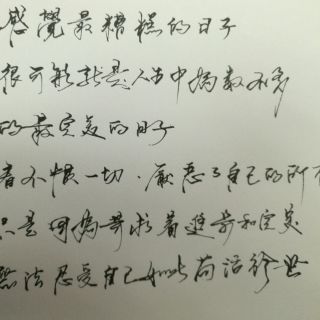 感覺最糟糕的日子
很可能就是人生中為數不多
的最完美的日子
看不慣一切．厭惡了自己的所有
只是因為尋求着進步和完美
無法忍受自己如此苟活於世